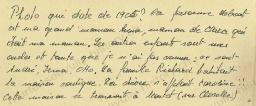 Photo que date de 1905 ? La personne debout
est ma grand maman Rosa, maman de Clara qui
était ma maman. Les autres enfants sont mes
oncles et tante que je n'ai pas connus, ce sont
André, Irma, Otto. La famille Richard habitait
la maison rustique. La mère s'appelait Caroline.
Cette maison se trouvait à Montet (sur Cudrefin)